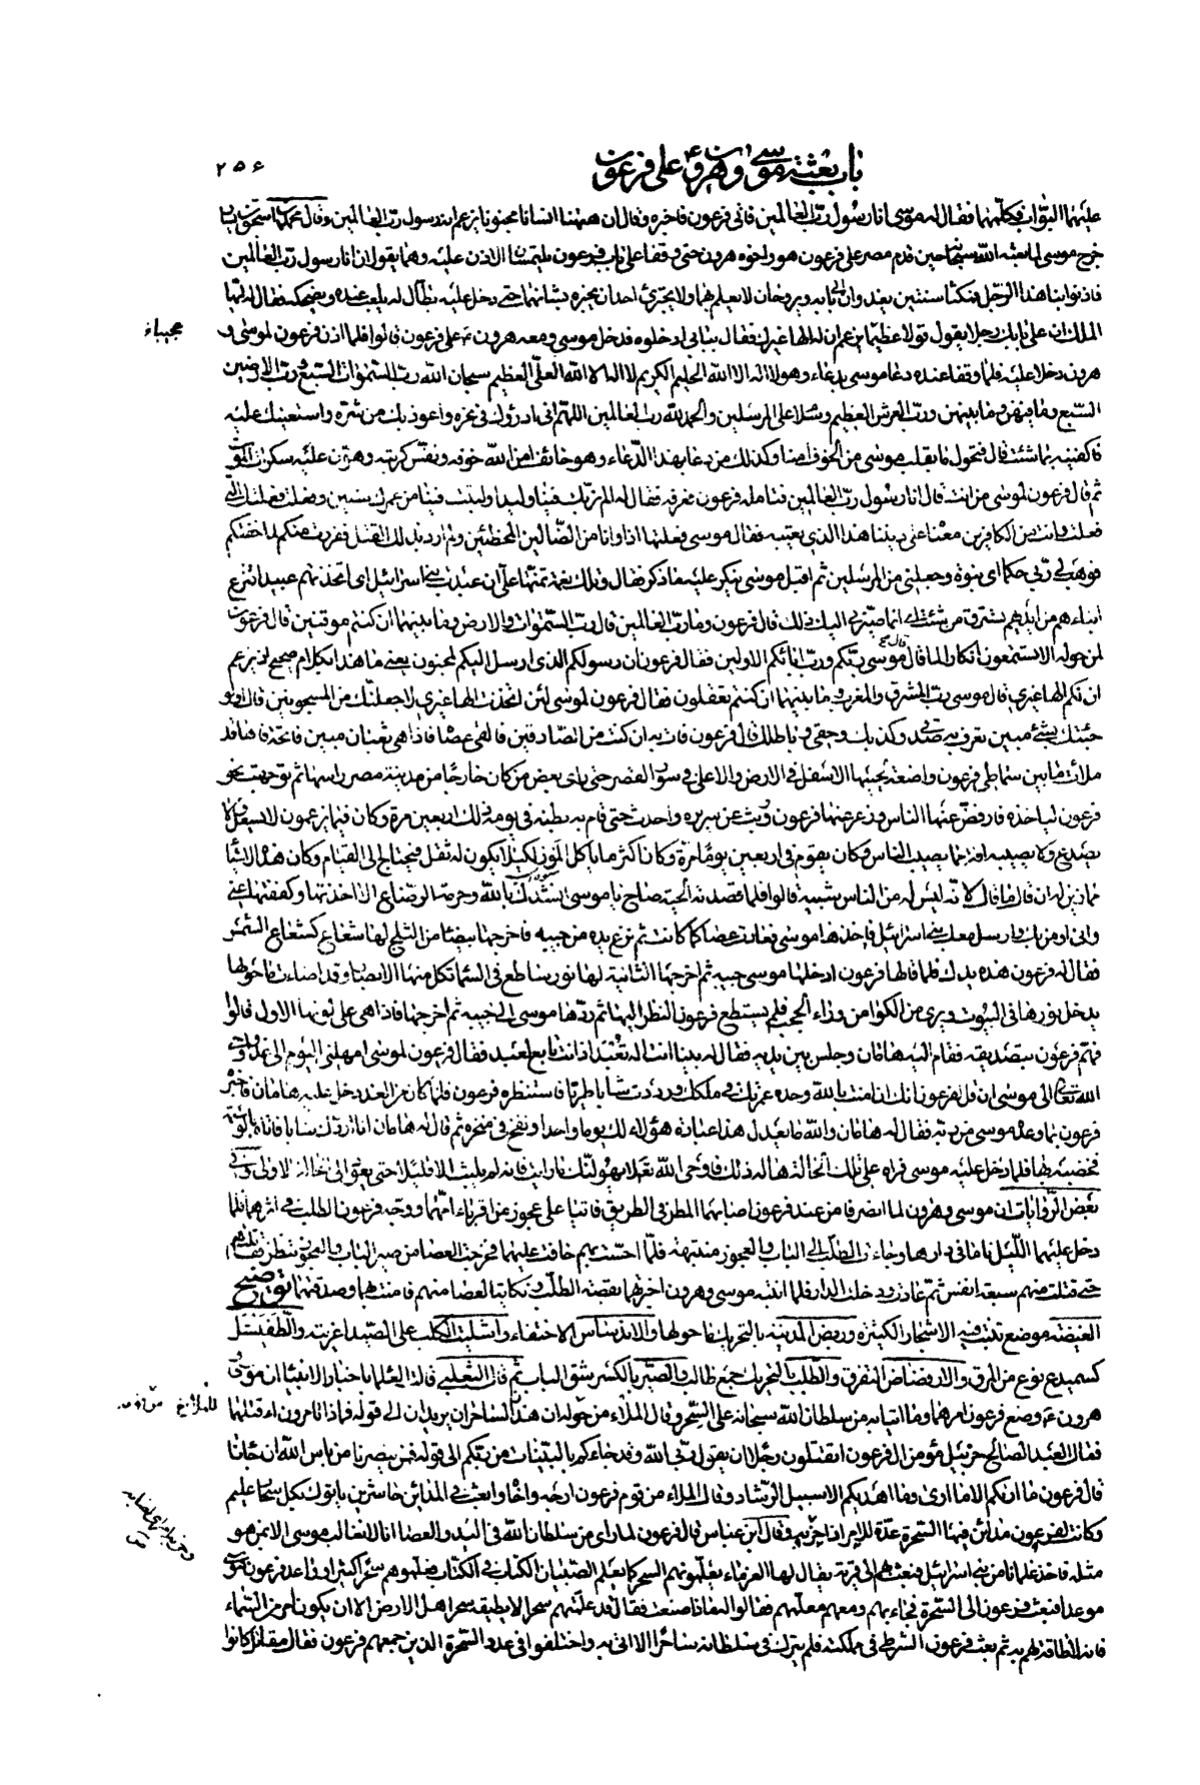 باب بعثة موسى وهرون ع على فرعون
٢٥٦
عليهما البواب فكلمهما فقال له موسى انا رسول رب العالمين فاتى فرعون فاخبره وقال ان ههنا انسانا مجنونا يزعم انه رسول رب العالمين وقال محمد بن اسحق بن يسار
خرج موسى لما بعثه الله سبحانه حين قدم مصر على فرعون هو واخوه هرون حتى وقفا على باب فرعون يلتمسان الاذن عليه وهما يقولان انا رسول رب العالمين
فاذنوا بنا هذا الرجل فمكثا سنتين يغدوان الى بابه ويروحان لا يعلم بهما ولا يجترئ احد ان يخبره بشانهما حتى دخل عليه بطال له يلعب عنده ويضحكه فقال له ايها
الملك ان على بابك رجلا يقول قولا عظيما يزعم ان له الها غيرك فقال ببابي ادخلوه فدخل موسى ومعه هرون ع على فرعون قالوا فلما اذن فرعون لموسى و
هرون دخلا عليه فلما وقفا عنده دعا موسى بدعاء وهو لا اله الا الله الحليم الكريم لا اله الا الله العلي العظيم سبحان الله رب السموات السبع ورب الارضين
السبع وما فيهن وما بينهن ورب العرش العظيم وسلام على المرسلين والحمد لله رب العالمين اللهم اني ادرؤك في نحره واعوذ بك من شره واستعينك عليه
فاكفنيه بما شئت قال فتحول ما بقلب موسى من الخوف امنا وكذلك من دعا بهذا الدعاء وهو خائف امن الله خوفه ونفس كربته وهون عليه سكرات الموت
ثم قال فرعون لموسى من انت قال انا رسول رب العالمين فتامله فرعون فعرفه فقال له الم نربك فينا وليدا ولبثت فينا من عمرك سنين وفعلت فعلتك التي
فعلت وانت من الكافرين معنا على ديننا هذا الذي تعيبه فقال موسى فعلتها اذا وانا من الضالين المخطئين ولم ارد بذلك القتل ففررت منكم لما خفتكم
فوهب لي ربي حكما اي نبوة وجعلني من المرسلين ثم اقبل موسى ينكر عليه ما ذكر فقال وتلك نعمة تمنها علي ان عبدت بني اسرائيل اي اتخذتهم عبيدا تنزع
ابناءهم من ايديهم تسترق من شئت اي انما صيرني اليك ذلك قال فرعون وما رب العالمين قال رب السموات والارض وما بينهما ان كنتم موقنين قال فرعون
لمن حوله الا تستمعون انكارا لما قال قال موسى ربكم ورب ابائكم الاولين فقال فرعون ان رسولكم الذي ارسل اليكم لمجنون يعني ما هذا بكلام صحيح اذ يزعم
ان لكم الها غيري قال موسى رب المشرق والمغرب وما بينهما ان كنتم تعقلون فقال فرعون لموسى لئن اتخذت الها غيري لاجعلنك من المسجونين قال اولو
جئتك بشئ مبين تعرف به صدقي وكذبك وحقي وباطلك قال فرعون فات به ان كنت من الصادقين فالقى عصاه فاذا هي ثعبان مبين فاتحة فاها قد
ملات ما بين سماطي فرعون واضعة لحييها الاسفل في الارض والاعلى في سور القصر حتى راى بعض من كان خارجا من مدينة مصر راسها ثم توجهت نحو
فرعون لياخذه فارفض عنها الناس وذعر عنها فرعون ووثب عن سريره واحدث حتى قام به بطنه في يومه ذلك اربعين مرة وكان فيما يزعمون لا يسعل ولا
يصدع ولا يصيبه افة مما يصيب الناس وكان يقوم في اربعين يوما مرة وكان اكثر ما ياكل الموز لكيلا يكون له ثفل فيحتاج الى القيام وكان هذه الاشياء
مما زين له ان قال ما قال لانه ليس له من الناس شبيه قالوا فلما قصدته الحية صاح يا موسى انشدك بالله وحرمة الرضاع الا اخذتها وكففتها عني
واني اومن بك وارسل معك بني اسرائيل فاخذها موسى فعادت عصا كما كانت ثم نزع يده من جيبه فاخرجها بيضاء من الثلج لها شعاع كشعاع الشمس
فقال له فرعون هذه يدك فلما قالها فرعون ادخلها موسى جيبه ثم اخرجها الثانية لها نور ساطع في السماء تكل منها الابصار وقد اضاءت ما حولها
يدخل نورها في البيوت ويرى من الكوا من وراء الحجب فلم يستطع فرعون النظر اليها ثم ردها موسى الى جيبه ثم اخرجها فاذا هي على لونها الاول قالوا
فهم فرعون بتصديقه فقام اليه هامان وجلس بين يديه فقال له بينا انت اله تعبد اذ انت تابع لعبد فقال فرعون لموسى امهلني اليوم الى غد واوحى
الله تعالى الى موسى ان قل لفرعون انك ان امنت بالله وحده عمرتك في ملكك ورددت شابا طريا فاستنظره فرعون فلما كان من الغد دخل عليه هامان فاخبره
فرعون بما وعده موسى من ربه فقال له هامان والله ما يعدل هذا عبادة هؤلاء لك يوما واحدا ونفخ في منخره ثم قال له هامان انا اردك شابا فاتاه بالوسمة
فخضبه بها فلما دخل عليه موسى فراه على تلك الحالة هاله ذلك فاوحى الله تعالى لا يهولنك ما رايت فانه لم يلبث الا قليلا حتى يعود الى حاله الاولى وفي
بعض الروايات ان موسى وهرون لما انصرفا من عند فرعون اصابهما المطر في الطريق فاتيا على عجوز من اقرباء امهما ووجه فرعون الطلب في اثرهما فلما
دخل عليهما الليل ناما في دارها وجاءت الطلب الى الباب والعجوز منتبهة فلما احست بهم خافت عليهما فخرجت العصا من صير الباب والعجوز تنظر فقاتلتهم
حتى قتلت منهم سبعة انفس ثم عادت ودخلت الدار فلما انتبه موسى وهرون اخبرتهما بقصة الطلب ونكاية العصا منهم فامنت بهما وصدقتهما توضيح
الغيضة موضع تنبت فيه الاشجار الكثيرة وربض المدينة بالتحريك ما حولها والاندساس الاختفاء واشليت الكلب على الصيد اغريته والطفيشل
كسميدع نوع من المرق والارفضاض التفرق والطلب بالتحريك جمع طالب والصير بالكسر شق الباب ثم قال الثعلبي قالت العلماء باخبار الانبياء ان موسى و
هرون ع وضع فرعون امرهما وما اتيا به من سلطان الله سبحانه على السحر وقال الملاء من حوله ان هذان لساحران يريدان الى قوله فماذا تامرون ءاقتلهما
فقال العبد الصالح حزبيل مؤمن ال فرعون اتقتلون رجلا ان يقول ربي الله وقد جاءكم بالبينات من ربكم الى قوله فمن ينصرنا من باس الله ان جاءنا
قال فرعون ما اريكم الا ما ارى وما اهديكم الا سبيل الرشاد وقال الملاء من قوم فرعون ارجه واخاه وابعث في المدائن حاشرين ياتوك بكل سحار عليم
وكانت لفرعون مدائن فيها السحرة عدة للامر اذا حزبه وقال ابن عباس قال فرعون لما راى من سلطان الله في اليد والعصا انا لا نغالب موسى الا بمن هو
مثله فاخذ غلمانا من بني اسرائيل فبعث بهم الى قرية يقال لها الغرماء يعلمونهم السحر كما يعلم الصبيان الكتاب في الكتاب فعلموهم سحرا كثيرا وواعد فرعون موسى
موعدا فبعث فرعون الى السحرة فجاء بهم ومعهم معلمهم فقالوا له ماذا صنعت فقال قد علمتهم سحرا لا يطيقه سحر اهل الارض الا ان يكون امر من السماء
فانه لا طاقة لهم به ثم بعث فرعون الشرطي في مملكته فلم يترك في سلطانه ساحرا الا اتى به واختلفوا في عدد السحرة الذين جمعهم فرعون فقال مقاتل كانوا